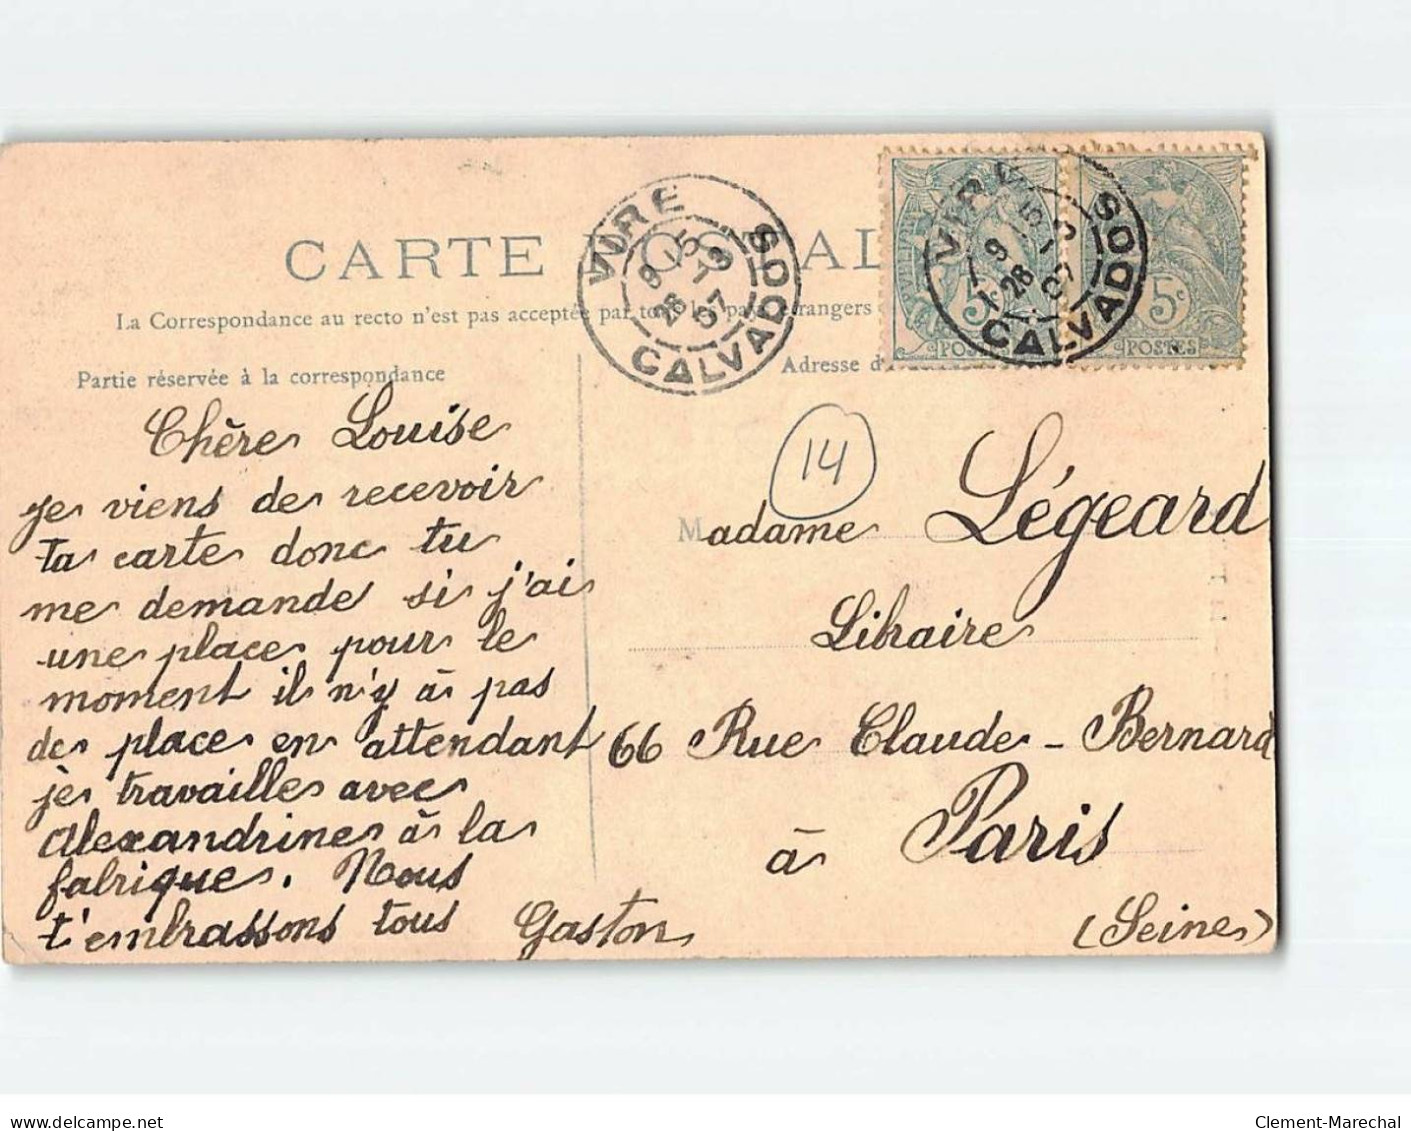 CARTE POSTALE
La Correspondance au recto n'est pas acceptée par tous les pays étrangers
Partie réservée à la correspondance
Adresse d
VIRE
CALVADOS
8 15
28 -9
07
VIRE
CALVADOS
8 15
28
07
5c
POSTES
5c
POSTES
14
Chère Louise
je viens de recevoir
ta carte donc tu
me demande si j'ai
une place pour le
moment il n'y à pas
de place en attendant
je travaille avec
Alexandrine à la
fabrique. Nous
t'embrassons tous
Gaston
Madame Légeard
Libraire
66 Rue Claude-Bernard
à Paris
(Seine)
Clement-Marechal
delcampe.net